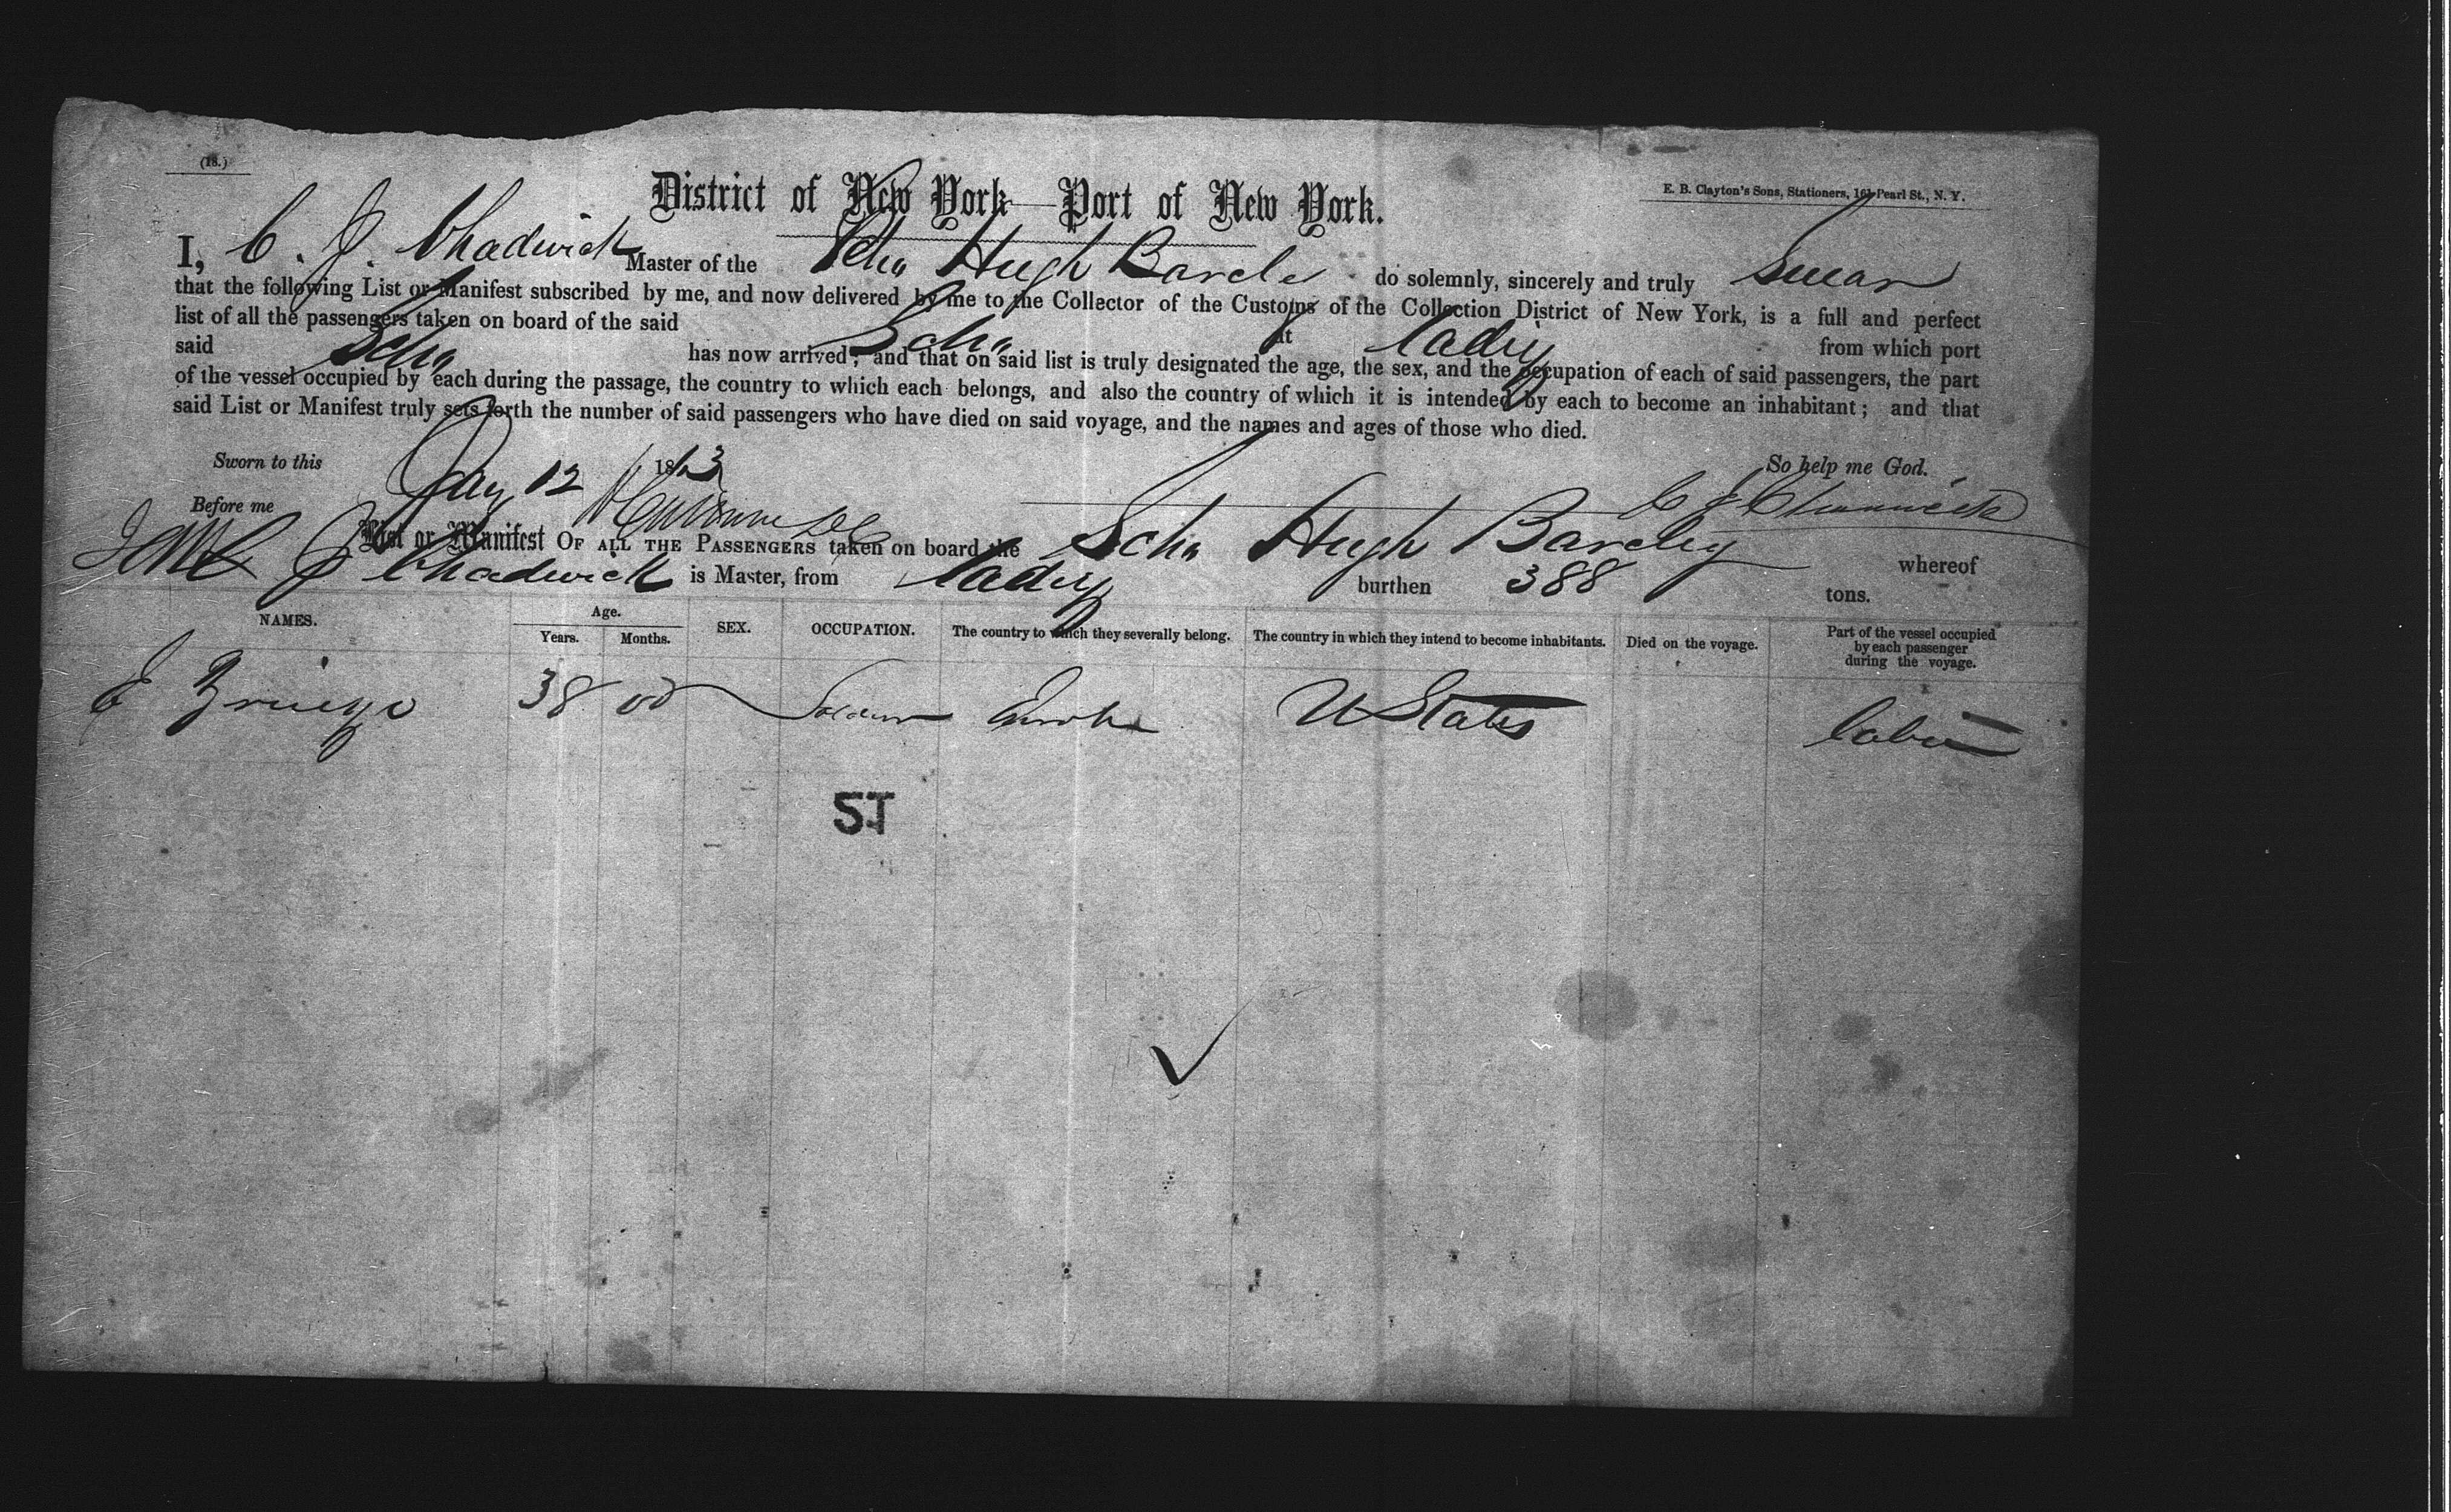 (18.)
District of New York—Port of New York.
E. B. Clayton's Sons, Stationers, 161 Pearl St., N. Y.
I, C. J. Chadwick Master of the Schr Hugh Barcle do solemnly, sincerely and truly Swear
that the following List or Manifest subscribed by me, and now delivered by me to the Collector of the Customs of the Collection District of New York, is a full and perfect
list of all the passengers taken on board of the said Schr at Cadiz from which port
said Schr has now arrived; and that on said list is truly designated the age, the sex, and the occupation of each of said passengers, the part
of the vessel occupied by each during the passage, the country to which each belongs, and also the country of which it is intended by each to become an inhabitant; and that
said List or Manifest truly sets forth the number of said passengers who have died on said voyage, and the names and ages of those who died.
Sworn to this Jany 12 1863 So help me God.
Before me
List or Manifest OF ALL THE PASSENGERS taken on board the Schr Hugh Barcley whereof
J Chadwick is Master, from Cadiz burthen 388 tons.
NAMES. Age. Years. Months. SEX. OCCUPATION. The country to which they severally belong. The country in which they intend to become inhabitants. Died on the voyage. Part of the vessel occupied by each passenger during the voyage.
E 38 00 U States Cabin
ST